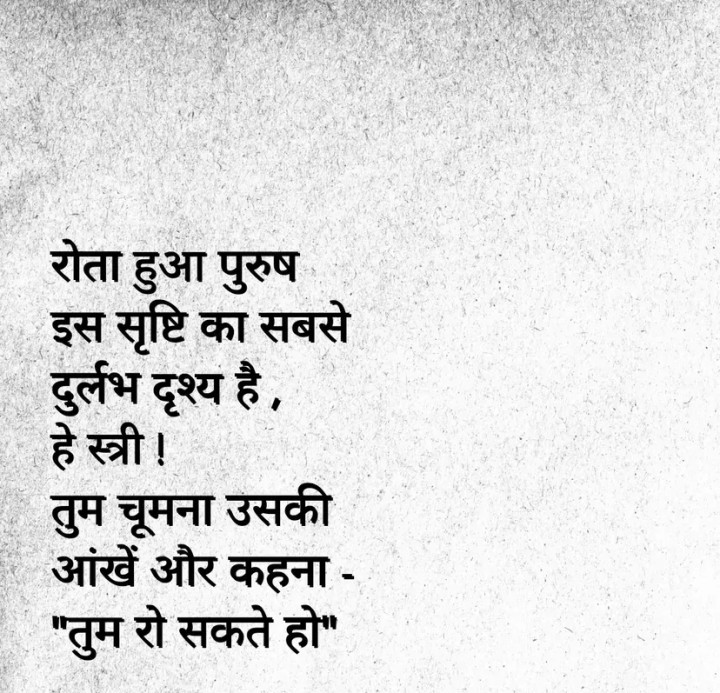 रोता हुआ पुरुष
इस सृष्टि का सबसे
दुर्लभ दृश्य है ,
हे स्त्री !
तुम चूमना उसकी
आंखें और कहना -
"तुम रो सकते हो"